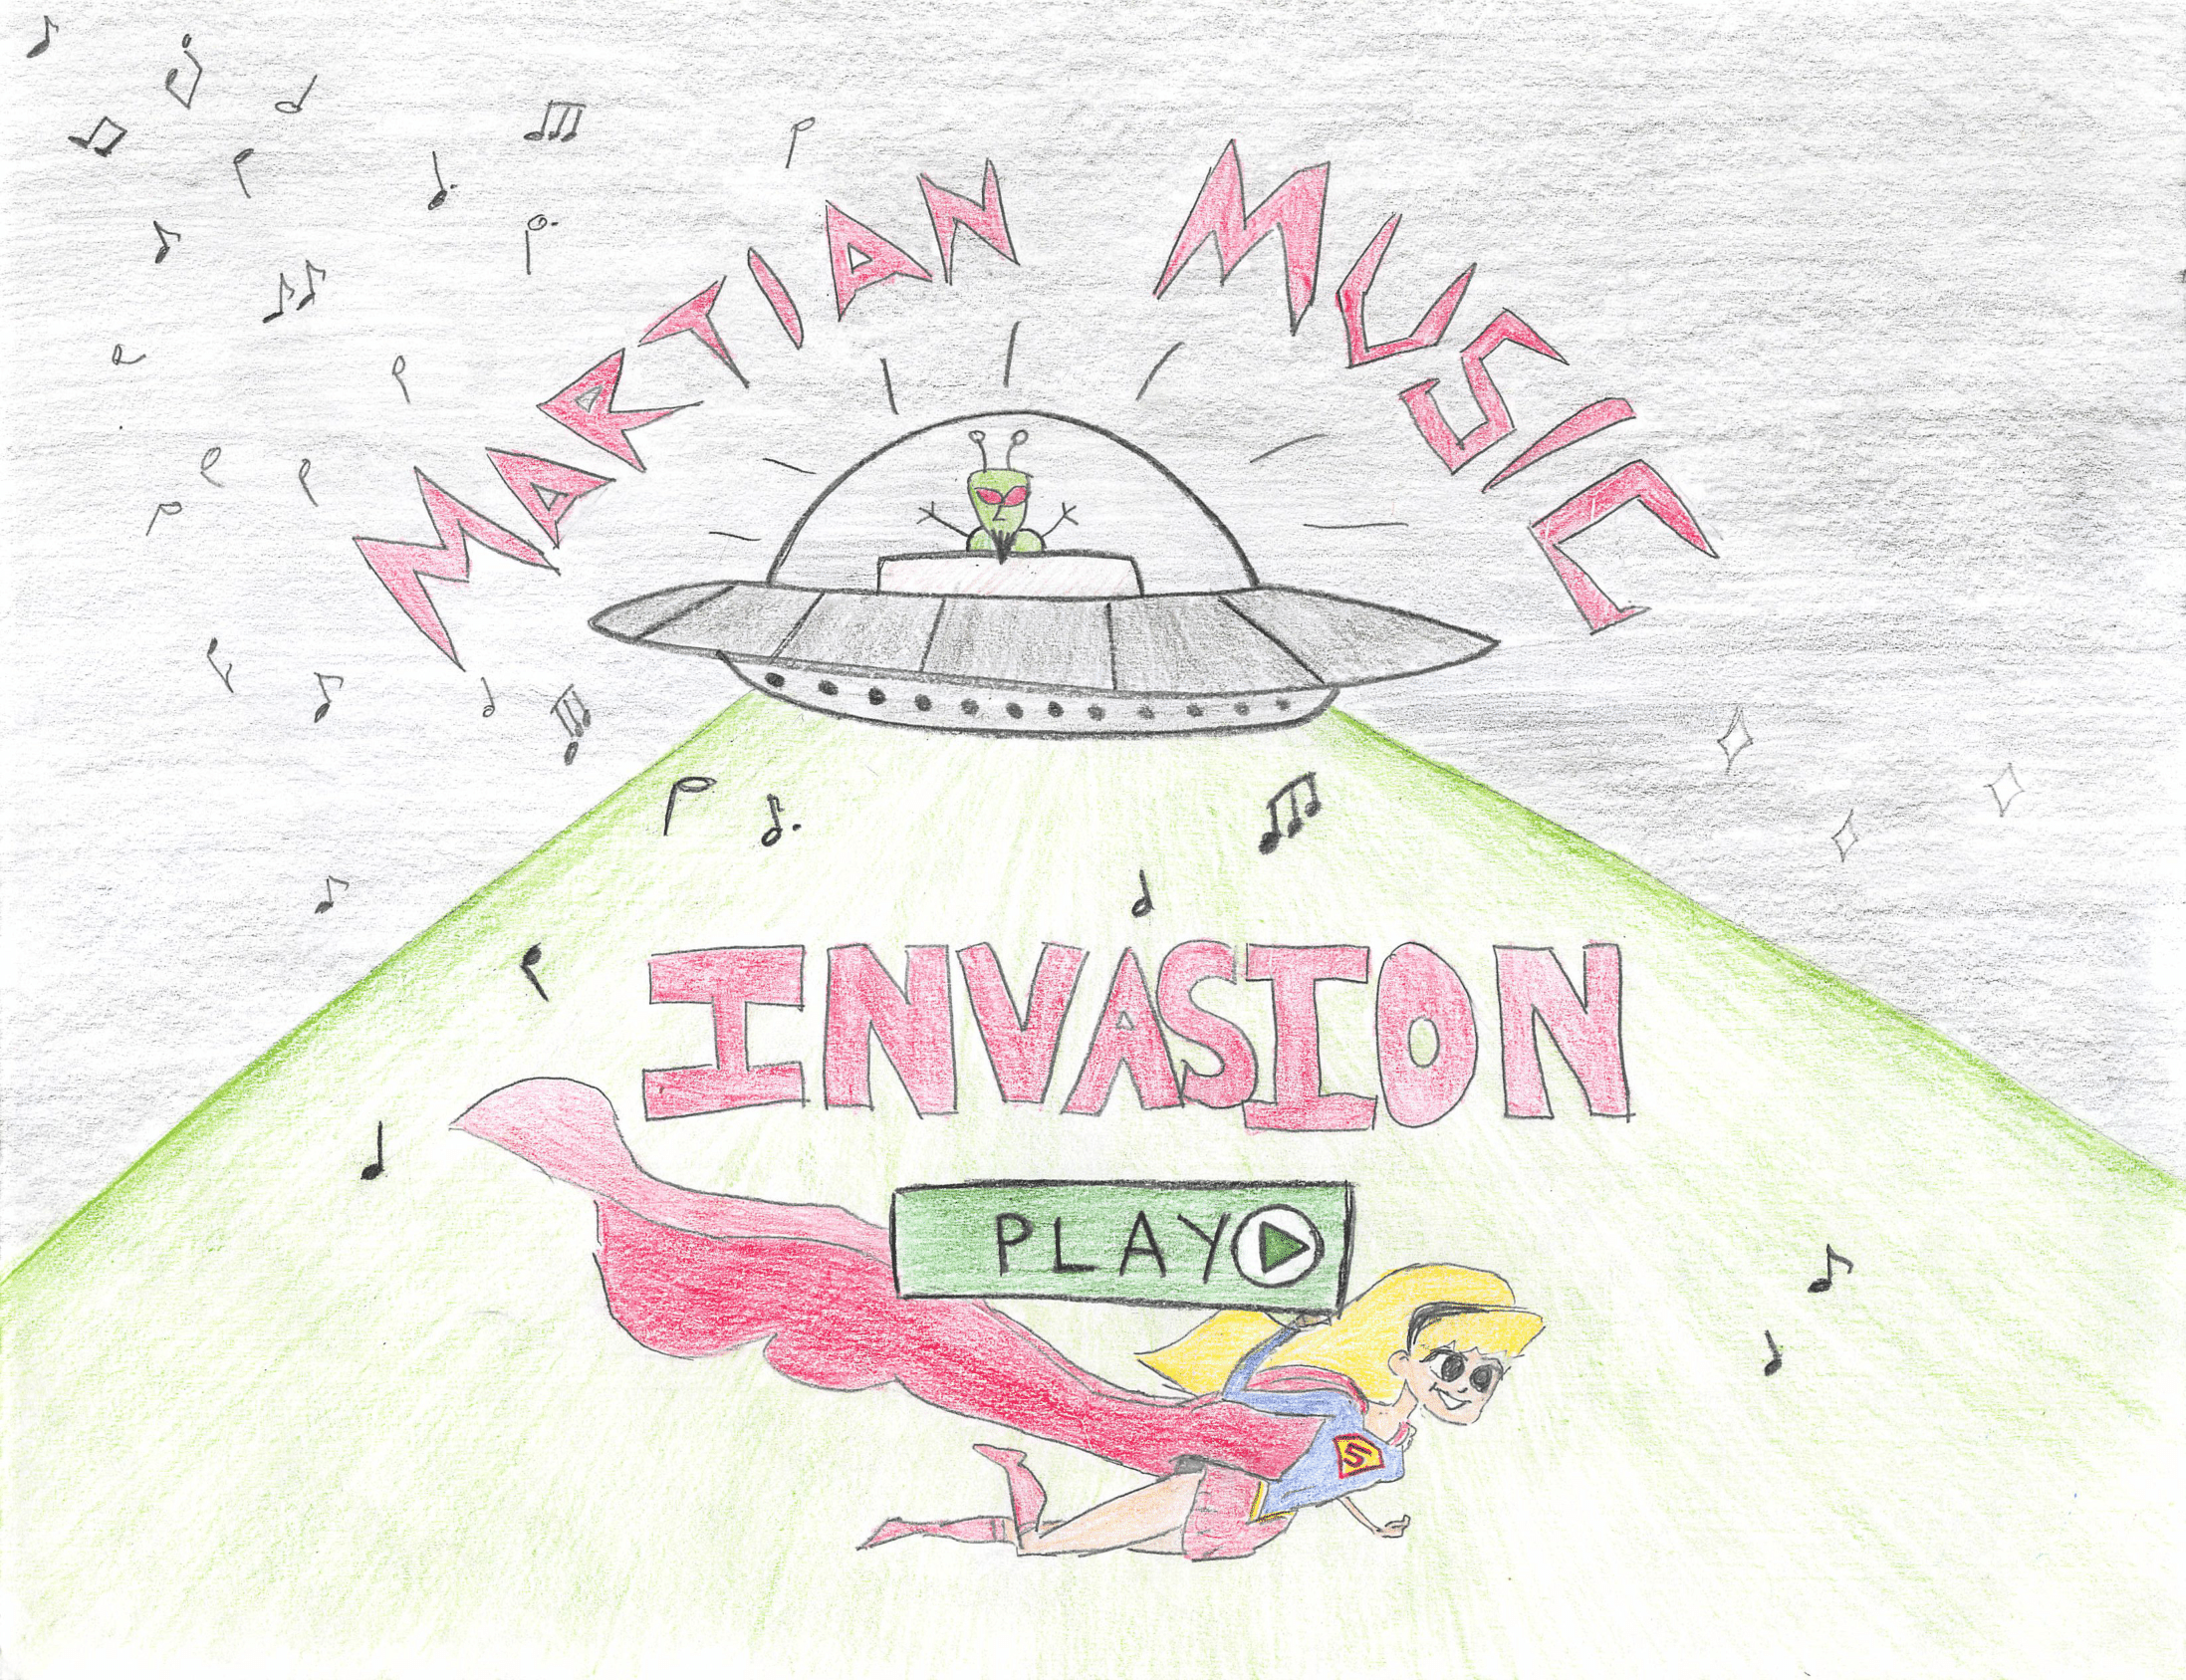 MARTIAN MUSIC
INVASION
PLAY
S